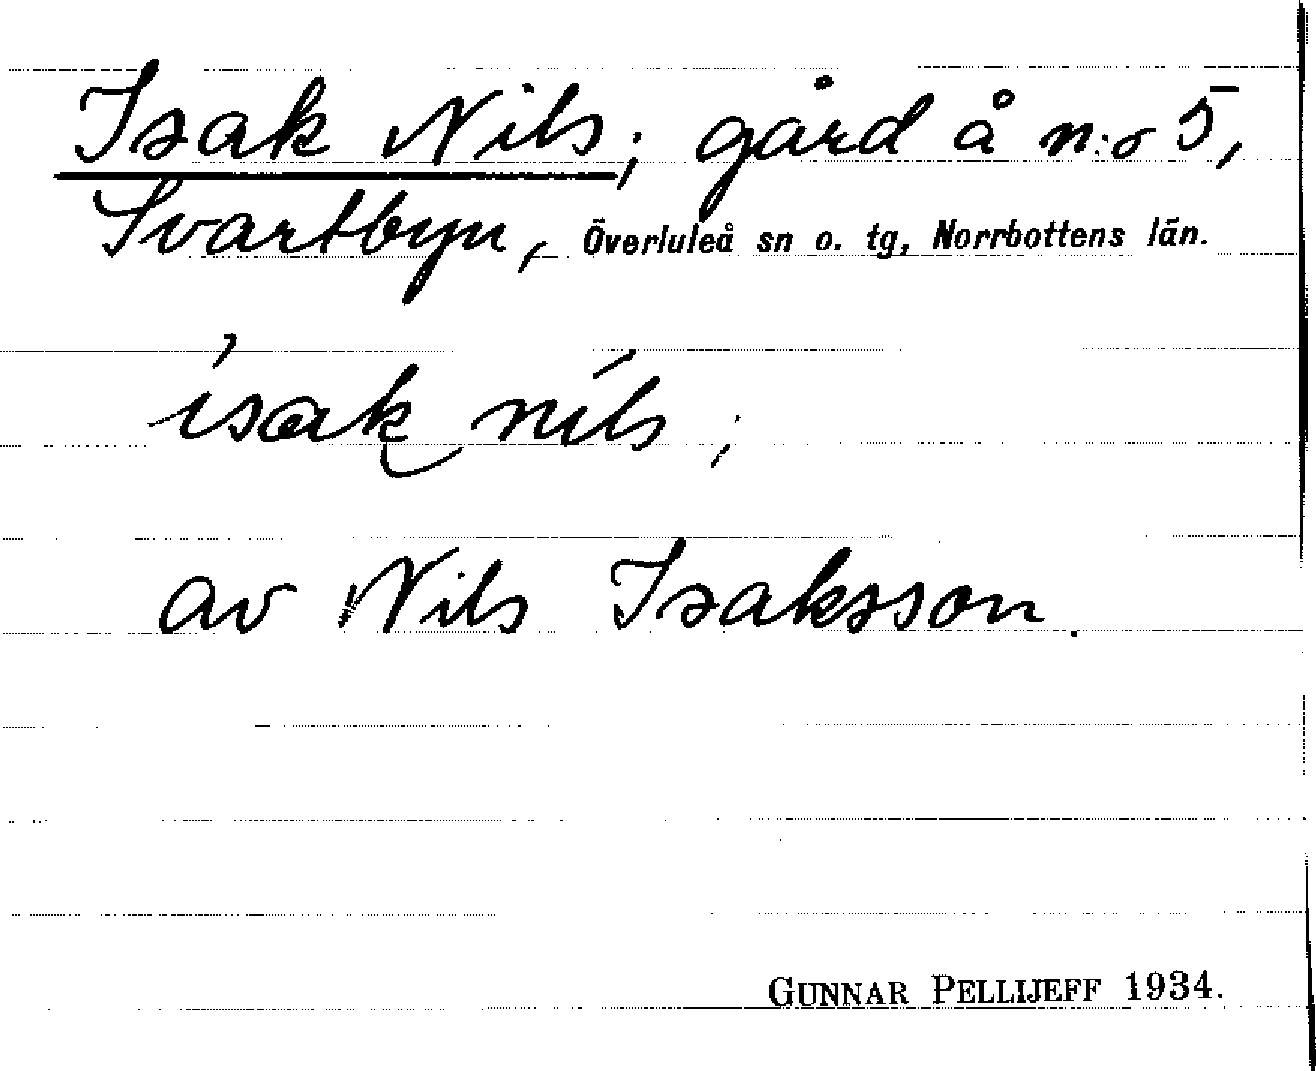 Isak Nils; gård å n:o 5,
Svartbyn, Överluleå sn o. tg, Norrbottens län.
ísak níls;
av Nils Isaksson.
GUNNAR PELLIJEFF 1934.